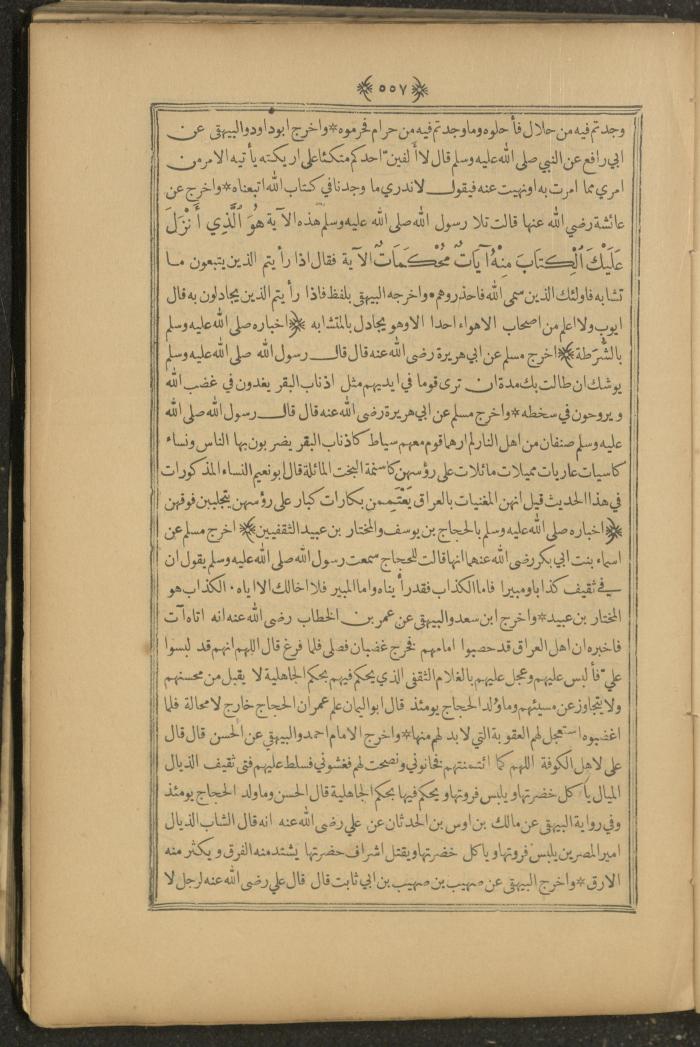 ﴿ ٥٥٧ ﴾
وجدتم فيه من حلال فأحلوه وما وجدتم فيه من حرام فحرموه * واخرج ابو داود والبيهقى عن
ابي رافع عن النبي صلى الله عليه وسلم قال لا ألفين احدكم متكئا على اريكته يأتيه الامر من
امري مما امرت به او نهيت عنه فيقول لا ندري ما وجدنا في كتاب الله اتبعناه * واخرج عن
عائشة رضي الله عنها قالت تلا رسول الله صلى الله عليه وسلم هذه الآية هُوَ ٱلَّذِي أَنْزَلَ
عَلَيْكَ ٱلْكِتَابَ مِنْهُ آيَاتٌ مُحْكَمَاتٌ الآية فقال اذا رأيتم الذين يتبعون ما
تشابه فاولئك الذين سمى الله فاحذروهم * واخرجه البيهقي بلفظ فاذا رأيتم الذين يجادلون به قال
ايوب ولا اعلم من اصحاب الاهواء احدا الا وهو يجادل بالمتشابه ﴿ اخباره صلى الله عليه وسلم
بالشُّرَطة ﴾ اخرج مسلم عن ابي هريرة رضى الله عنه قال قال رسول الله صلى الله عليه وسلم
يوشك ان طالت بك مدة ان ترى قوما في ايديهم مثل اذناب البقر يغدون في غضب الله
ويروحون في سخطه * واخرج مسلم عن ابي هريرة رضى الله عنه قال قال رسول الله صلى الله
عليه وسلم صنفان من اهل النار لم ارهما قوم معهم سياط كاذناب البقر يضربون بها الناس ونساء
كاسيات عاريات مميلات مائلات على رؤسهن كاسنمة البخت المائلة قال ابو نعيم النساء المذكورات
في هذا الحديث قيل انهن المغنيات بالعراق يَعْتَمِمن بكارات كبار على رؤسهن يتجلببن فوقهن
﴿ اخباره صلى الله عليه وسلم بالحجاج بن يوسف والمختار بن عبيد الثقفيين ﴾ اخرج مسلم عن
اسماء بنت ابي بكر رضى الله عنهما انها قالت للحجاج سمعت رسول الله صلى الله عليه وسلم يقول ان
في ثقيف كذابا ومبيرا فاما الكذاب فقد رأيناه واما المبير فلا اخالك الا اياه • الكذاب هو
المختار بن عبيد * واخرج ابن سعد والبيهقى عن عمر بن الخطاب رضى الله عنه انه اتاه آت
فاخبره ان اهل العراق قد حصبوا امامهم فخرج غضبان فصلى فلما فرغ قال اللهم انهم قد لبسوا
عليّ فألبس عليهم وعجل عليهم بالغلام الثقفى الذي يحكم فيهم بحكم الجاهلية لا يقبل من محسنهم
ولا يتجاوز عن مسيئهم وما وُلد الحجاج يومئذ قال ابو اليمان علم عمر ان الحجاج خارج لا محالة فلما
اغضبوه استعجل لهم العقوبة التي لا بد لهم منها * واخرج الامام احمد والبيهقي عن الحسن قال قال
على لاهل الكوفة اللهم كما ائتمنتهم فخانوني ونصحت لهم فغشوني فسلط عليهم فتى ثقيف الذيال
الميال يأكل خضرتها ويلبس فروتها ويحكم فيها بحكم الجاهلية قال الحسن وما ولد الحجاج يومئذ
وفي رواية البيهقى عن مالك بن اوس بن الحدثان عن علي رضى الله عنه انه قال الشاب الذيال
امير المصرين يلبس فروتها وياكل خضرتها ويقتل اشراف حضرتها يشتد منه الفرق ويكثر منه
الارق * واخرج البيهقى عن صهيب بن صهيب بن ابي ثابت قال قال علي رضى الله عنه لرجل لا